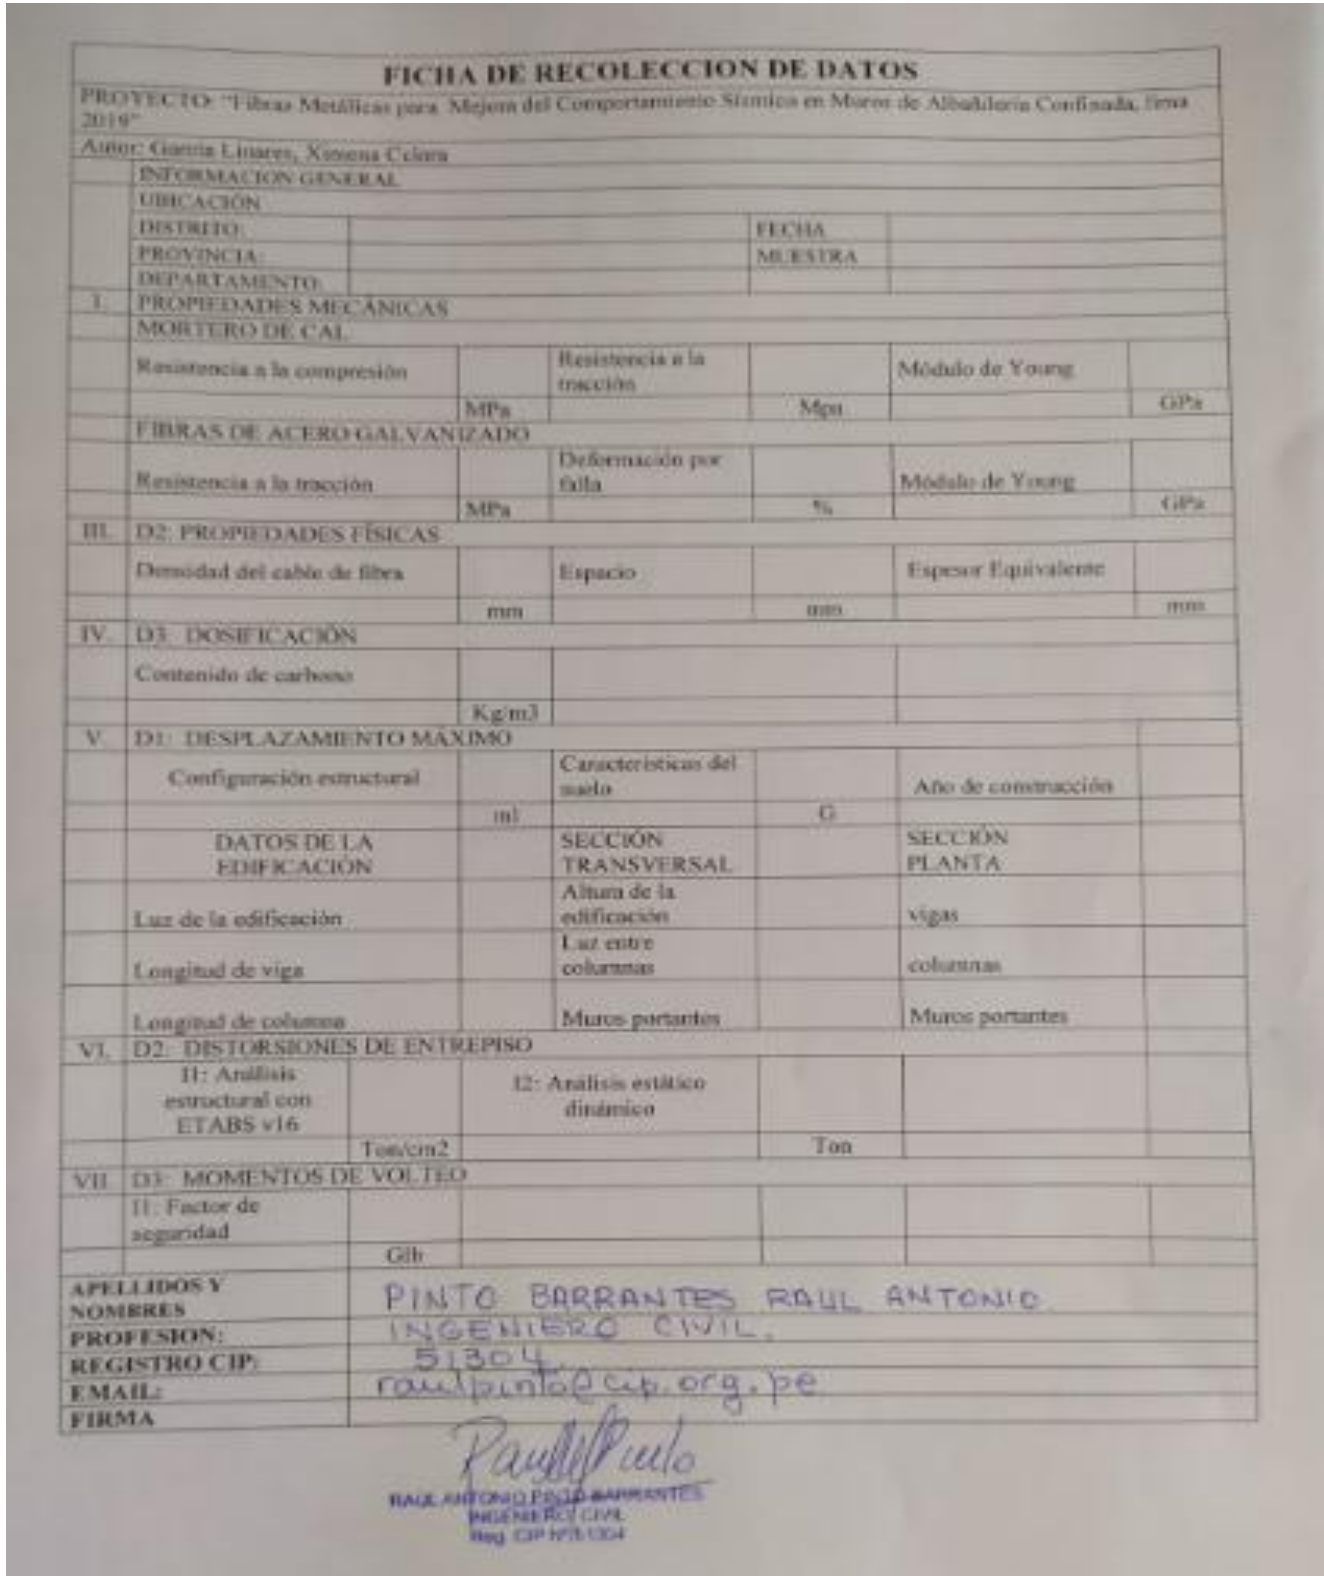 FICHA DE RECOLECCION DE DATOS
PROYECTO: "Fibras Metálicas para Mejora del Comportamiento Sísmico en Muros de Albañilería Confinada, lima
2019"
Autor: Linares, Ximena
INFORMACION GENERAL
UBICACIÓN
DISTRITO: FECHA
PROVINCIA: MUESTRA
DEPARTAMENTO:
I. PROPIEDADES MECÁNICAS
MORTERO DE CAL
Resistencia a la compresión Resistencia a la tracción Módulo de Young
MPa Mpa GPa
FIBRAS DE ACERO GALVANIZADO
Resistencia a la tracción Deformación por falla Módulo de Young
MPa % GPa
III. D2: PROPIEDADES FÍSICAS
Densidad del cable de fibra Espacio Espesor Equivalente
mm mm mm
IV. D3: DOSIFICACIÓN
Contenido de carbono
Kg/m3
V. D1: DESPLAZAMIENTO MÁXIMO
Configuración estructural Características del suelo Año de construcción
ml G
DATOS DE LA EDIFICACIÓN SECCIÓN TRANSVERSAL SECCIÓN PLANTA
Luz de la edificación Altura de la edificación vigas
Longitud de viga Luz entre columnas columnas
Longitud de columna Muros portantes Muros portantes
VI. D2: DISTORSIONES DE ENTREPISO
I1: Análisis estructural con ETABS v16 I2: Análisis estático dinámico
Ton/cm2 Ton
VII. D3: MOMENTOS DE VOLTEO
I1: Factor de seguridad
Glb
APELLIDOS Y NOMBRES PINTO BARRANTES RAUL ANTONIO
PROFESION: INGENIERO CIVIL.
REGISTRO CIP: 51304
EMAIL: raulpinto@cip.org.pe
FIRMA
RAUL ANTONIO PINTO BARRANTES
INGENIERO CIVIL
Reg. CIP N°51304